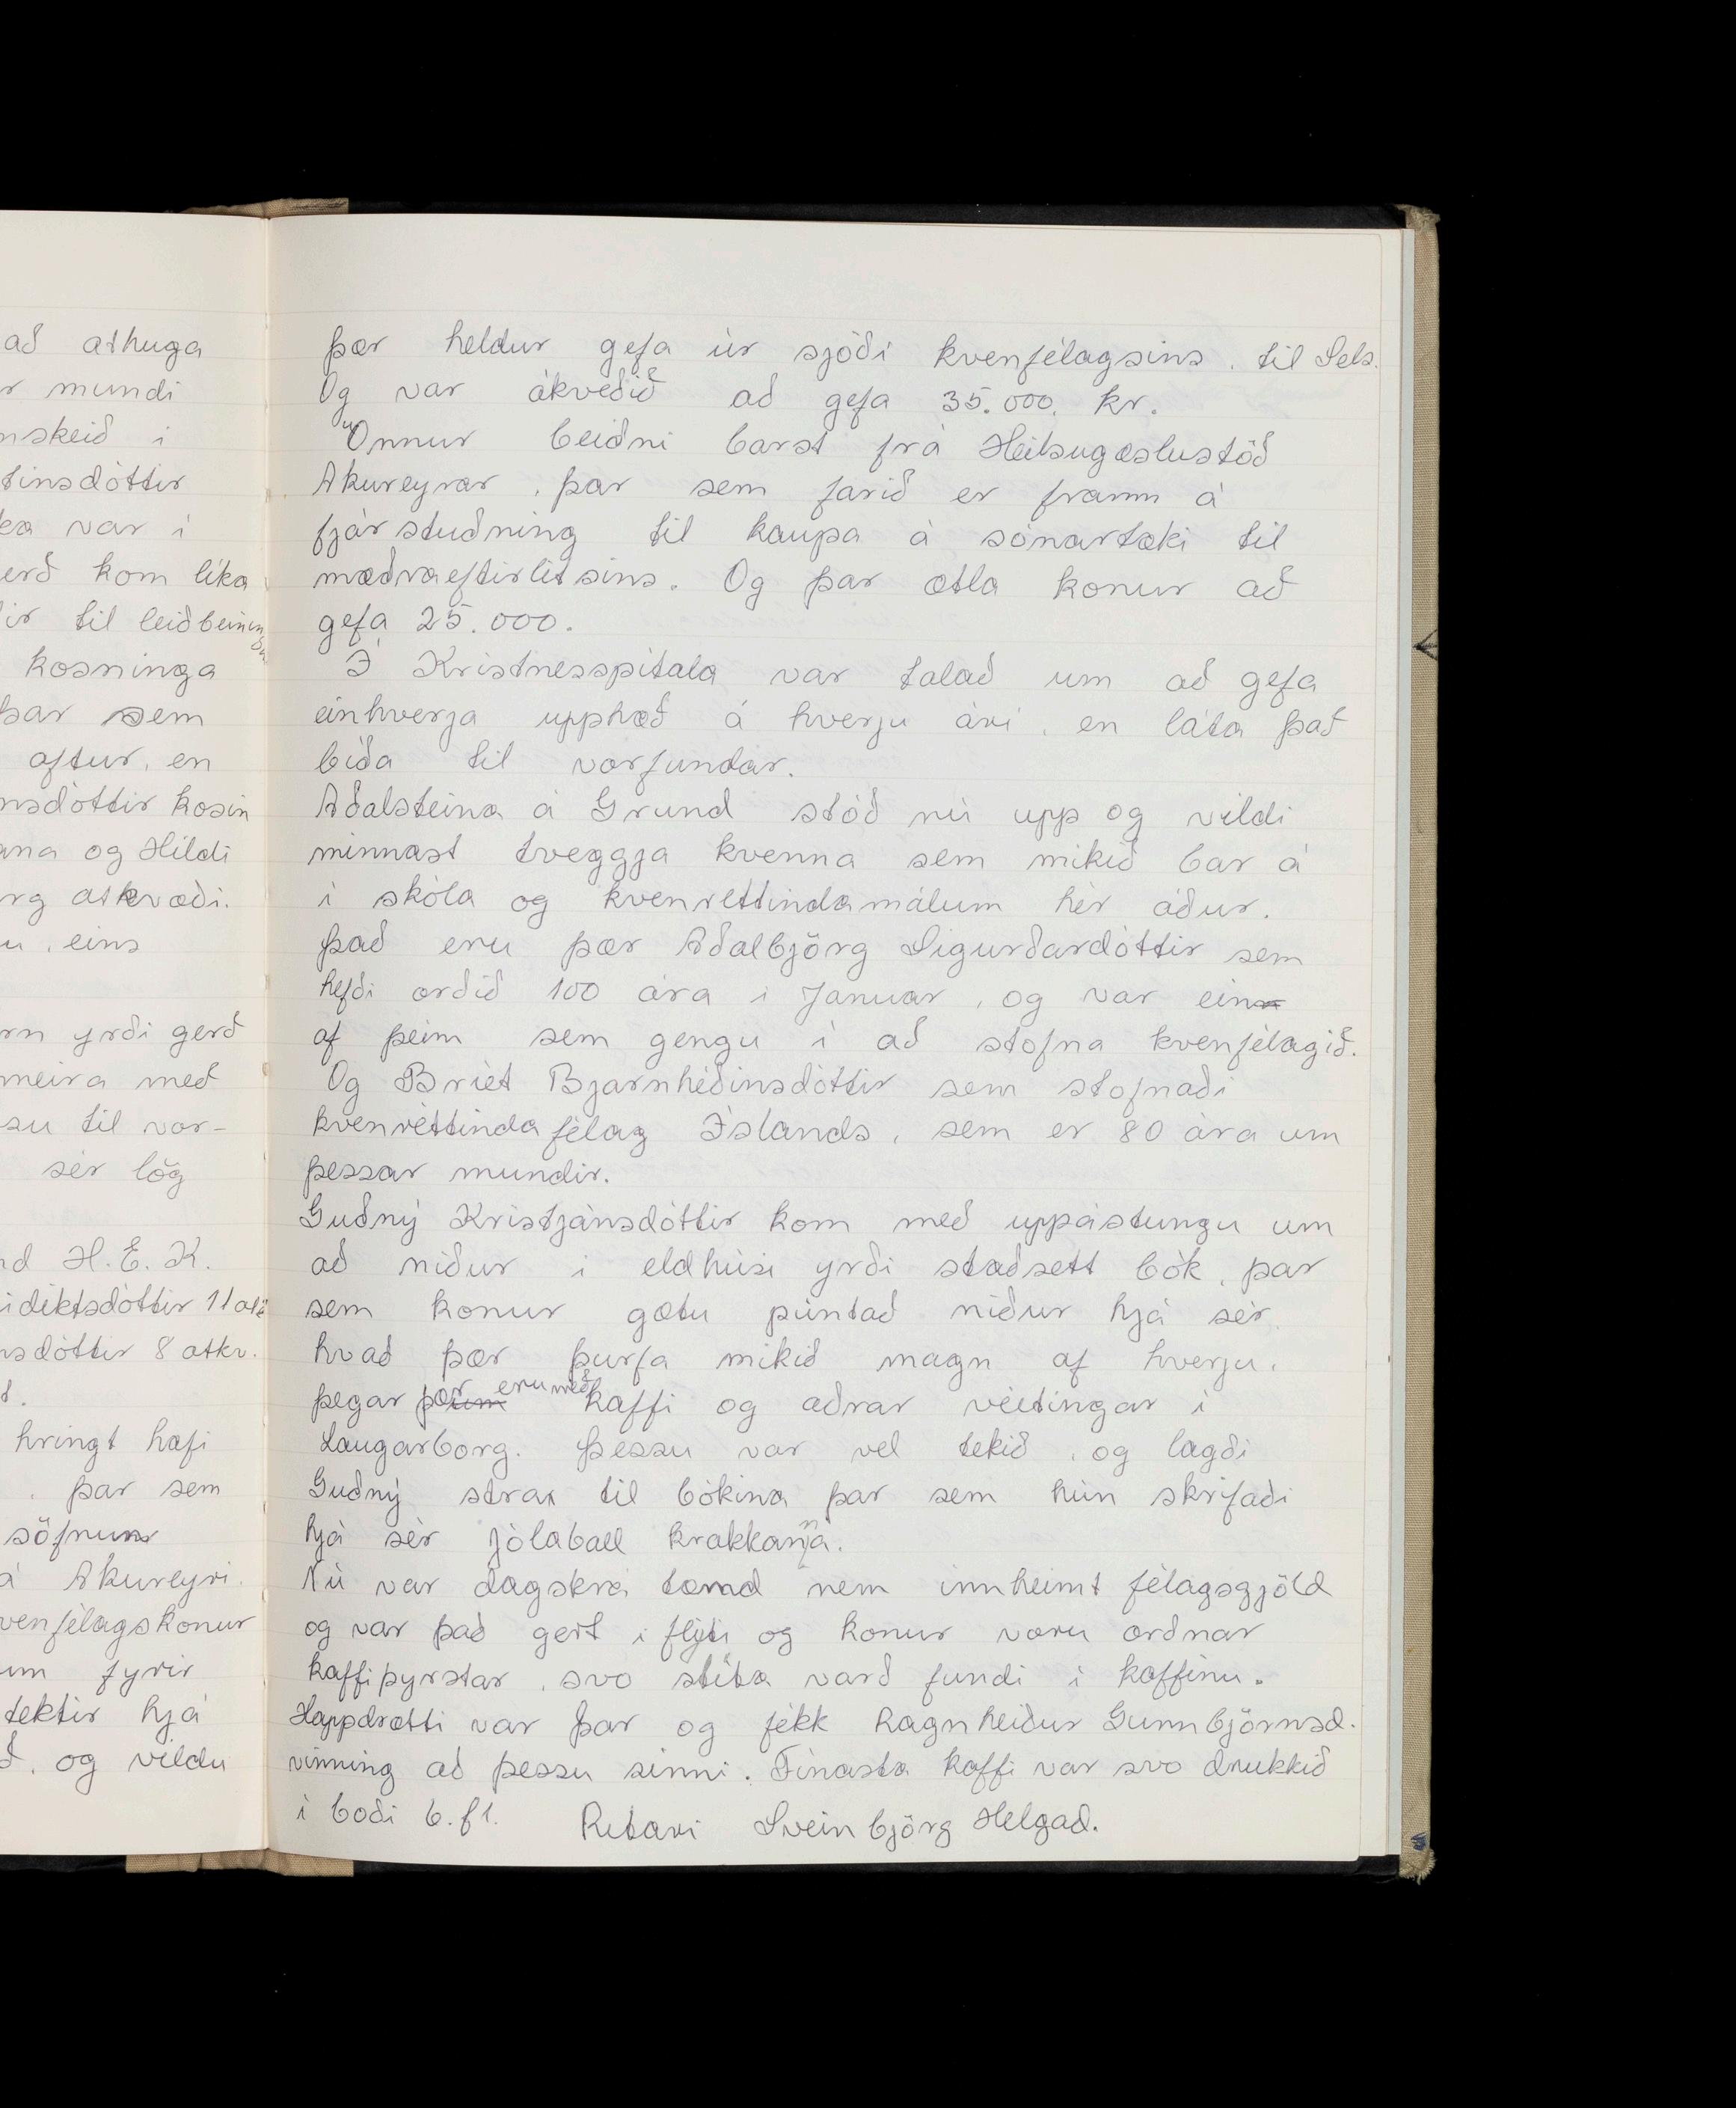 að athuga
r mundi
nskeið i
tinsdóttir
ka var í
erð kom líka
ir til leiðbeining
kosninga
þar sem
aftur, en
nsdóttir kosin
ana og Hildi
rg atkvæði.
u, eins
rn yrði gerð
meira með
su til vor-
sér lög
nd H.E.K.
idiktsdóttir 11 atk
nsdóttir 8 atkv.
hringt hafi
, þar sem
söfnun
á Akureyri.
venfélagskonur
um fyrir
tektir hjá
ð, og vildu
þær heldur gefa úr sjóði kvenfélagsins, til Sels.
Og var ákveðið að gefa 35.000. kr.
Önnur beiðni barst frá Heilsugæslustöð
Akureyrar, þar sem farið er framm á
fjárstuðning til kaupa á sónartæki til
mæðraeftirlitsins. Og þar ætla konur að
gefa 25.000.
Í Kristnesspítala var talað um að gefa
einhverja upphæð á hverju ári, en láta það
bíða til vorfundar.
Aðalsteina á Grund stóð nú upp og vildi
minnast tveggja kvenna sem mikið bar á
i skóla og kvenréttindamálum hér áður.
Það eru þær Aðalbjörg Sigurðardóttir sem
hefði orðið 100 ára i Januar, og var ein
af þeim sem gengu i að stofna kvenfélagið.
Og Bríet Bjarnhéðinsdóttir sem stofnaði
kvenréttindafélag Íslands, sem er 80 ára um
þessar mundir.
Guðný Kristjánsdóttir kom með uppástungu um
að niður i eldhúsi yrði staðsett bók, þar
sem konur gætu púntað niður hjá sér
hvað þær þurfa mikið magn af hverju,
þegar þær eru með kaffi og aðrar veitingar i
Laugarborg. Þessu var vel tekið, og lagði
Guðný strax til bókina þar sem hún skrifaði
hjá sér jólaball krakkanna.
Nú var dagskrá tæmd nem innheimt félagsgjöld
og var það gert i flýti og konur voru orðnar
kaffiþyrstar, svo slíta varð fundi i kaffinu.
Happdrætti var þar og fékk Ragnheiður Gunnbjörnsd.
vinning að þessu sinni. Finasta kaffi var svo drukkið
i boði b.fl. Ritari Sveinbjörg Helgad.